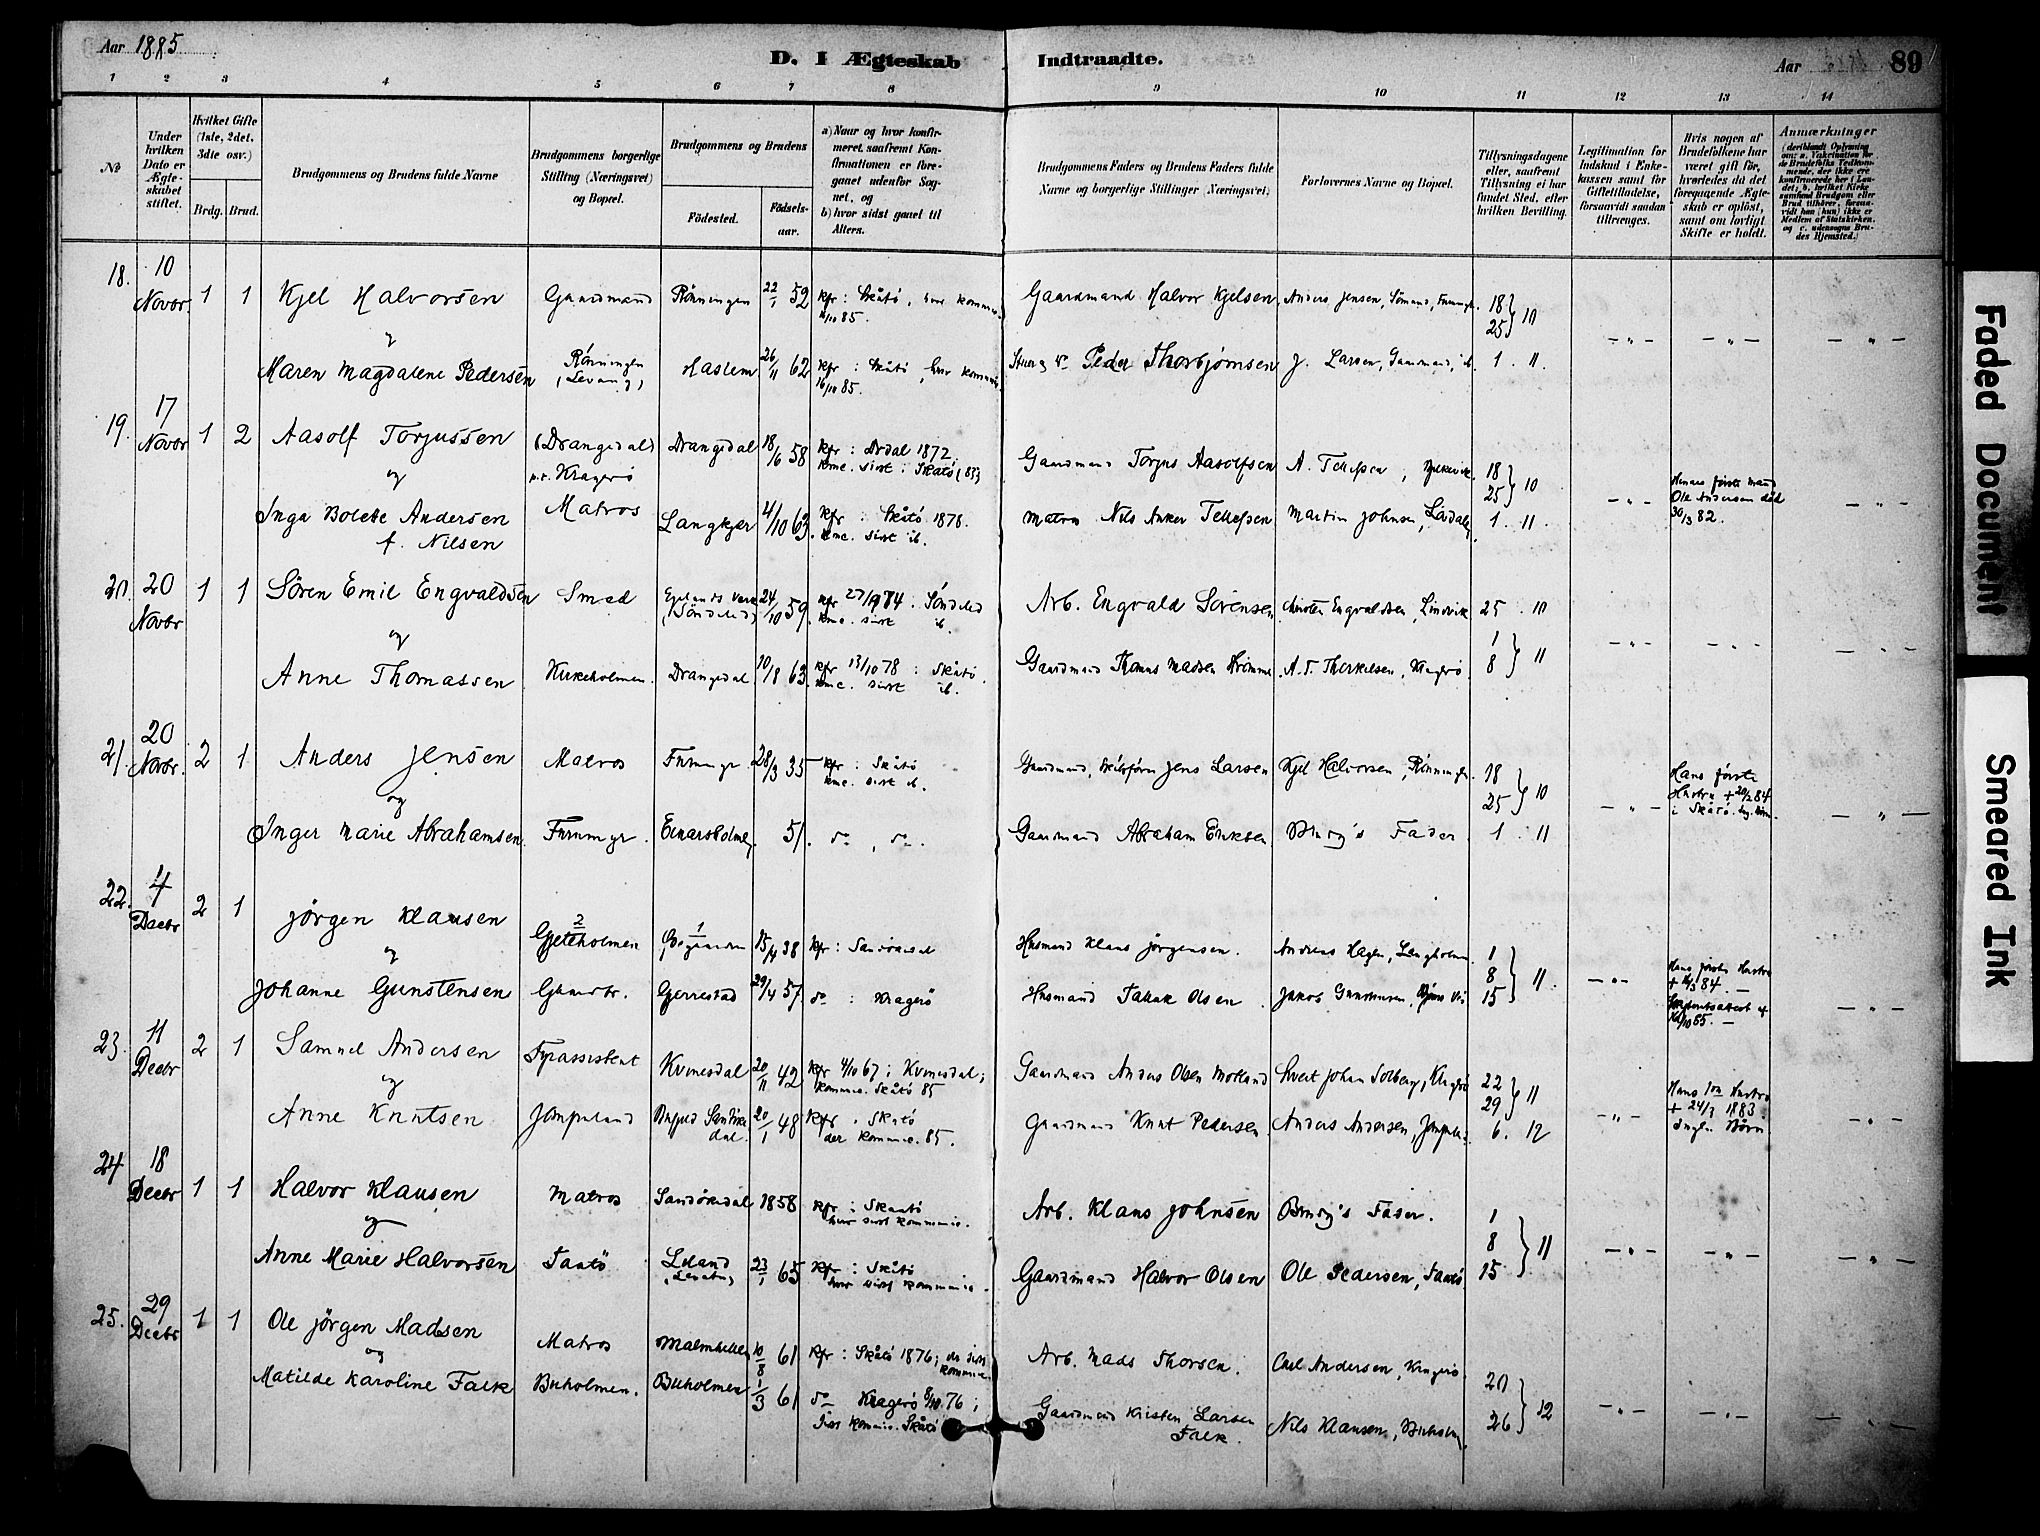 Aar 1885
D. I Ægteskab Indtraadte.
Aar
89
1 2 3 4 5 6 7 8 9 10 11 12 13 14
No
Under hvilken Dato er Ægteskabet stiftet.
Hvilket Gifte (1ste, 2det, 3die osv.)
Brdg. Brud.
Brudgommens og Brudens fulde Navne
Brudgommens borgerlige Stilling (Næringsvei) og Bopæl.
Brudgommens og Brudens
Födested.
Födselsaar.
a) Naar og hvor konfirmeret, saafremt Konfirmationen er foregaaet udenfor Sognet, og
b) hvor sidst gaaet til Alters.
Brudgommens Faders og Brudens Faders fulde Navne og borgerlige Stillinger (Næringsvei)
Forlovernes Navne og Bopæl.
Tillysningsdagene eller, saafremt Tillysning ei har fundet Sted, efter hvilken Bevilling.
Legitimation for Indskud i Enkekassen samt for Giftetilladelse, forsaavidt saadan tiltrænges.
Hvis nogen af Brudefolkene har været gift för, hvorledes da det foregaaende Ægteskab er oplöst, samt om lovligt Skifte er holdt.
Anmærkninger
18. 10 Novbr. 1 1 Kjel Halvorsen Gaardmand Rönningen 22/1 52 kfr: Skåtö, Gaardmand Halvor Kjelsen Anders Jensen, Sömand, 18 25 } 10
og
Maren Magdalene Pedersen Rönningen Haslem 26/11 62 kfr: Skåtö, 16/10 85. Peder Thorbjørnsen J. Larsen, Gaardmand, ib. 1. 11.
19. 17 Novbr 1 2 Aasolf Torjussen (Drangedal) Drangedal 18/6 58 kfr: Drdal 1872. kmc. sist: Skåtö (85) Gaardmand Torjus Aasolfsen A. Tellefsen, 18 25 } 10
og Kragerö
Inga Bolette Andersen Matros Langkjær 4/10 63 kfr: Skåtö 1878. kmc. sist ib. Matros Nils Anker Tellefsen Martin Johnsen, 1. 11.
f. Nilsen
Hendes förste Mand Ole Andersen död 30/3 82.
20. 20 Novbr 1 1 Sören Emil Engvaldsen Smed Egelands Værk (Söndeled) 24/10 59 Söndeled kmc. sist ib. Arb. Engvald Sörensen Engvaldsen, Lindvik 25. 10
og
Anne Thomassen Kirkeholmen Drangedal 10/8 63 kfr 13/10 78: Skåtö. kmc. sist ib. Gaardmand Thomas Madsen A. T. Therkelsen, Kragerö. 1 8 } 11
21. 20 Novbr. 2 1 Anders Jensen Matros Furumyr 28/3 35 kfr: Skåtö kmc. sist ib. Gaardmand, Jens Larsen Kjel Halvorsen, Rönningen 18 25 } 10
og
Inger Marie Abrahamsen Furumyr. 51. do, do. Gaardmand Abraham Eriksen Brudg's Fader 1. 11
Hans förste Hustru + 20/2 84 i Skåtö.
22. 4 Decbr 2 1 Jörgen Klausen Gjeteholmen 15/4 38 kfr: Sandökedal Husmand Klaus Jörgensen. Andreas Hagen, Langholmen. 1 8 15 } 11.
og
Johanne Gunstensen Gjerrestad 29/4 57 do: Kragerö Husmand Olsen
Hans förste Hustru + 84.
23. 11 Decbr 2 1 Samuel Andersen Fyrassistent Kvinesdal 20/11 42 kfr 4/10 67; Kvinesdal; kommu. Skåtö 85 Gaardmand Anders Olsen Motland Johan Solberg, Kragerö 22 29 } 11
og
Anne Knutsen Jomfruland 20/1 48 kfr. Skåtö der kommu. 85. Gaardmand Knut Pedersen Anders Andersen, 6. 12
Hans 1ste Hustru + 24/3 1883 Ingen Börn
24 18 Decbr 1 1 Halvor Klausen Matros Sandökedal 1858 kfr: Skaatö her sist kommunic. Arb. Klaus Johnsen Brudg's Fader. 1 8 15 } 11
og
Anne Marie Halvorsen Taatö 23/1 65 kfr: Skåtö her sist kommunic. Gaardmand Halvor Olsen Ole Pedersen, Taatö
25. 29 Decbr 1 1 Ole Jörgen Madsen Matros 10/8 61 kfr: Skåtö 1876; der sist kommunic. Arb. Mads Thorsen. Carl Andersen, Kragerö. 20 26 } 12
og
Matilde Karoline Falk Buholmen. Buholmen 1/3 61 do Kragerö 8/10 76; sist kommu. Skåtö Gaardmand Kristen Larsen Falk. Nils Klausen, Buholmen.
Faded Document
Smeared Ink